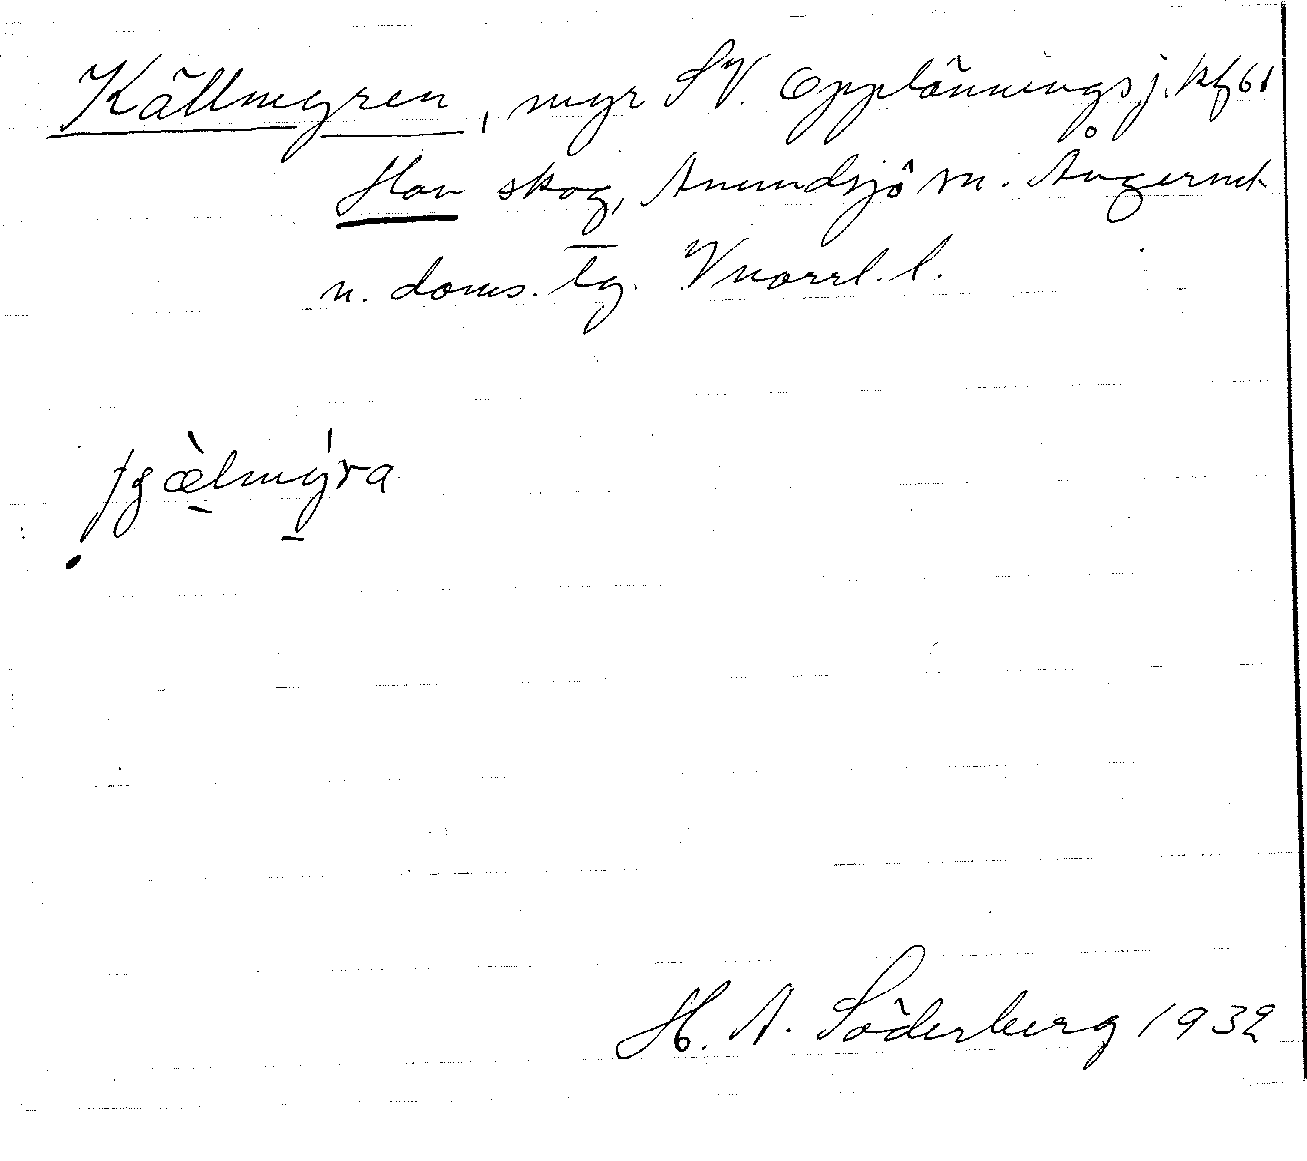 Källmyren, myr SV. Opplänningsj. kf 61
Hon skog, Anundsjö sn. Ångerml.
n. doms. lg. Vnorrl. l.
H. A. Söderberg 1932